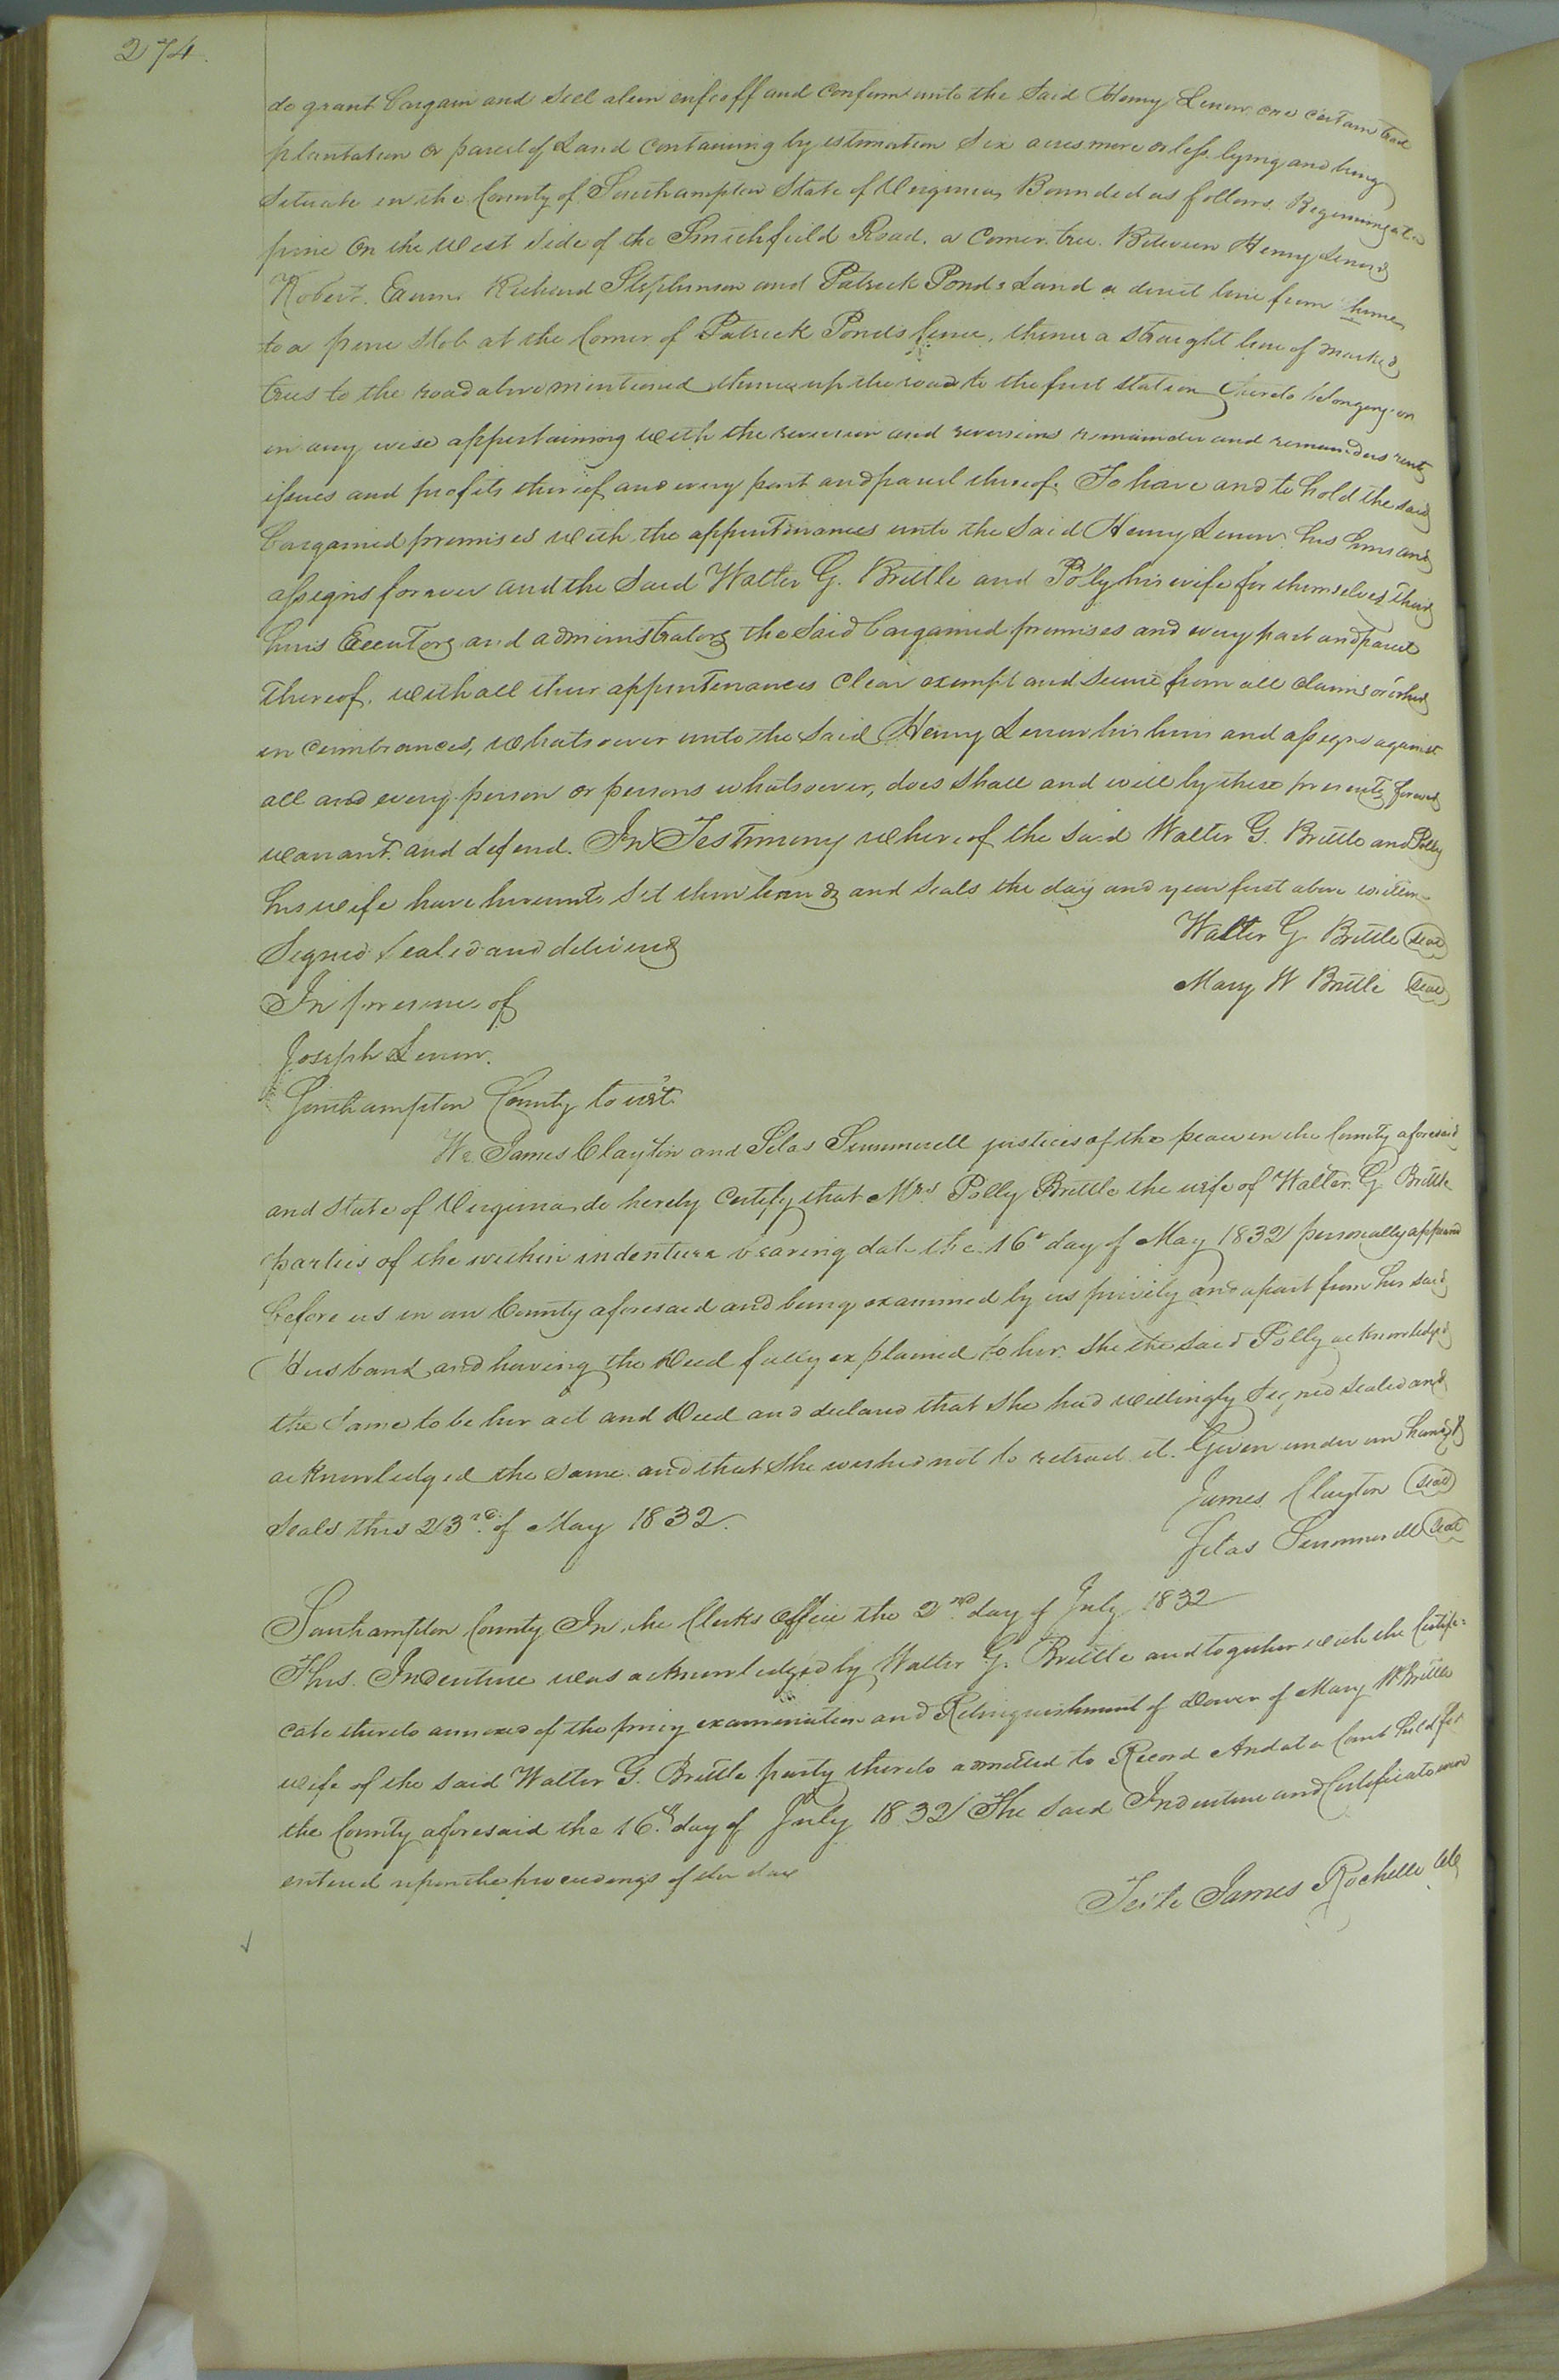 274.
do grant bargain and sell alein enfeoff and confirm unto the Said Henry Lenow one certain tract
plantation or parcel of Land Containing by estimation Six acres more or less lying and being
Situate in the County of Southampton State of Virginia, Bounded as follows. Beginning at a
pine On the West Side of the Smithfield Road. a Corner tree. Between Henry Lenow
Robert. Richard Stephenson and Patrick Ponds Land a direct line from thence
to a pine Stob at the Corner of Patrick Ponds fence, thence a straight line of marked
trees to the road above mentioned thence up the road to the first station thereto belonging or
in any wise appertaining with the revercion and revercions remainder and remainders rents
issues and profits thereof and every part and parcel thereof. To have and to hold the said
bargained premises with the appurtenances unto the Said Henry Lenow his heirs and
assigns forever and the Said Walter G. Brittle and Polly his wife for themselves their
heirs Executors and administrators the Said bargained premises and every part and parcel
thereof. with all their appurtenances Clear exempt and Secure from all claims or other
in cumbrances, whatsoever unto the Said Henry Lenow his heirs and assigns against
all and every person or persons whatsoever, does Shall and will by these presents forever
warrant. and defend. In Testimony whereof the said Walter G. Brittle and Polly
his wife have hereunto Set their hands and Seals the day and year first above written
Signed Sealed and delivered
Walter G Brittle seal
In presence of
Mary W Brittle seal
Joseph Lenow.
Southampton County to wit
We James Clayton and Silas Summerell justices of the peace in the County aforesaid
and State of Virginia do hereby Certify that Mrs Polly Brittle the wife of Walter. G Brittle
parties of the within indenture bearing date the 16th day of May 1832 personally appeared
before us in our County aforesaid and being examined by us privily and apart from her said
Husband and having the Deed fully explained to her. She the said Polly acknowledged
the Same to be her act and Deed and declared that She had willingly Signed Sealed and
acknowledged the same. and that She wished not to retract it. Given under our hands &
Seals this 23rd. of May 1832.
James Clayton seal
Silas Summerell seal
Southampton County In the Clerks Office the 2nd. day of July 1832
This. Indenture was acknowledged by Walter G. Brittle and together with the Certifi-
cate thereto annexed of the privy examination and Relinquishment of Dower of Mary W Brittle
wife of the said Walter G. Brittle party thereto admitted to Record And at a Court held for
the County aforesaid the 16th day of July 1832 The Said Indenture and Certificate were
entered upon the proceedings of the day
Teste James Rochelle Clk